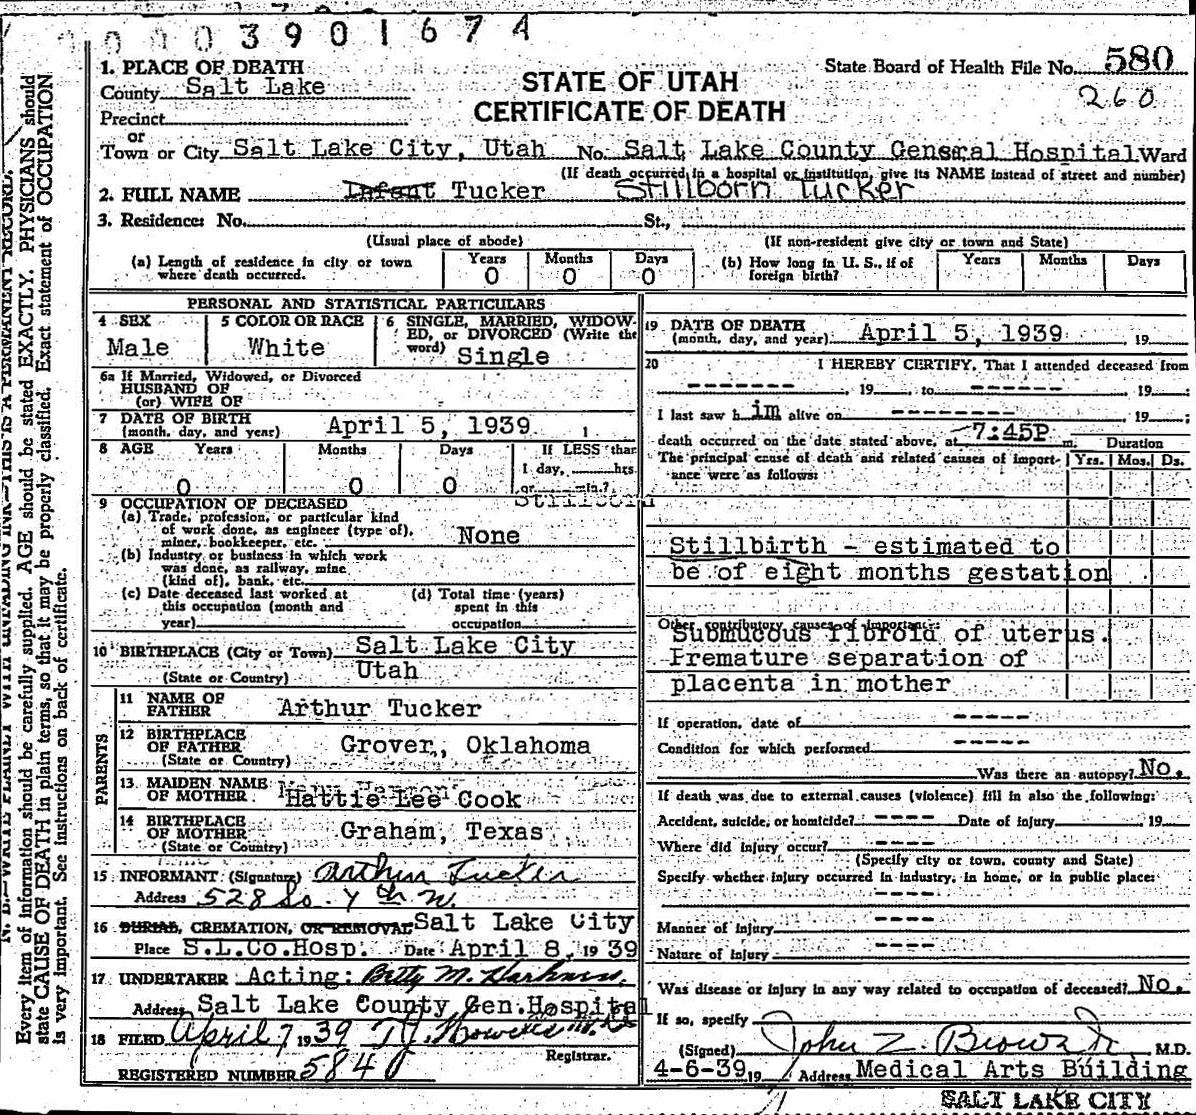 0003901674
1. PLACE OF DEATH
County Salt Lake
Precinct
or
Town or City Salt Lake City, Utah No. Salt Lake County General Hospital Ward
(If death occurred in a hospital or institution, give its NAME instead of street and number)
STATE OF UTAH
CERTIFICATE OF DEATH
State Board of Health File No. 580
260
2. FULL NAME Infant Tucker Stillborn Tucker
3. Residence: No. St.,
(Usual place of abode) (If non-resident give city or town and State)
(a) Length of residence in city or town where death occurred. Years 0 Months 0 Days 0
(b) How long in U. S., if of foreign birth? Years Months Days
PERSONAL AND STATISTICAL PARTICULARS
4 SEX Male
5 COLOR OR RACE White
6 SINGLE, MARRIED, WIDOWED, or DIVORCED (Write the word) Single
6a If Married, Widowed, or Divorced
HUSBAND OF
(or) WIFE OF
7 DATE OF BIRTH
(month, day, and year) April 5, 1939
8 AGE Years Months Days If LESS than
1 day, hrs.
0 0 0 or min.?
Stillborn
9 OCCUPATION OF DECEASED
(a) Trade, profession, or particular kind
of work done, as engineer (type of),
miner, bookkeeper, etc. None
(b) Industry or business in which work
was done, as railway, mine
(kind of), bank, etc.
(c) Date deceased last worked at
this occupation (month and
year)
(d) Total time (years)
spent in this
occupation
10 BIRTHPLACE (City or Town) Salt Lake City
(State or Country) Utah
PARENTS
11 NAME OF
FATHER Arthur Tucker
12 BIRTHPLACE
OF FATHER Grover, Oklahoma
(State or Country)
13 MAIDEN NAME
OF MOTHER Hattie Lee Cook
14 BIRTHPLACE
OF MOTHER Graham, Texas
(State or Country)
15 INFORMANT (Signature) Arthur Tucker
Address 528 So. 4th W.
16 BURIAL, CREMATION, OR REMOVAL Salt Lake City
Place S.L.Co.Hosp. Date April 8, 1939
17 UNDERTAKER Acting: Betty M. Harkness.
Address Salt Lake County Gen.Hospital
18 FILED April 7 1939
Registrar.
REGISTERED NUMBER 5840
19 DATE OF DEATH
(month, day, and year) April 5, 1939 , 19
20 I HEREBY CERTIFY, That I attended deceased from
------- , 19 , to ------ , 19 ;
I last saw him alive on -------- , 19 ;
death occurred on the date stated above, at 7:45P m. Duration
The principal cause of death and related causes of importance were as follows: Yrs. Mos. Ds.
Stillbirth - estimated to
be of eight months gestation
Other contributory causes of importance:
Submucous fibroid of uterus.
Premature separation of
placenta in mother
If operation, date of -----
Condition for which performed -----
Was there an autopsy? No.
If death was due to external causes (violence) fill in also the following:
Accident, suicide, or homicide? ---- Date of injury 19
Where did injury occur? ----
(Specify city or town, county and State)
Specify whether injury occurred in industry, in home, or in public place:
----
Manner of injury ----
Nature of injury ----
Was disease or injury in any way related to occupation of deceased? No.
If so, specify
(Signed) John Z. Brown Jr. , M.D.
4-6-39 19 Address Medical Arts Building
SALT LAKE CITY
N. B.—WRITE PLAINLY WITH UNFADING INK—THIS IS A PERMANENT RECORD.
Every item of information should be carefully supplied. AGE should be stated EXACTLY. PHYSICIANS should
state CAUSE OF DEATH in plain terms, so that it may be properly classified. Exact statement of OCCUPATION
is very important. See instructions on back of certificate.